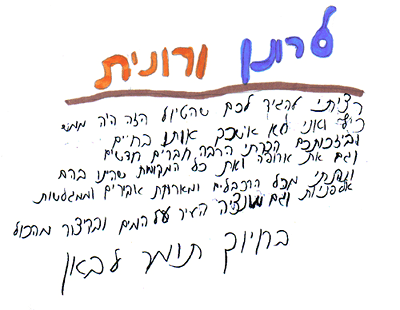 לרונן ורונית
רציתי להגיד לכם שהטיול הזה היה ממש
כיף ואני לא אשכח אותו בחיים
ובזכותכם הכרתי הרבה חברים חדשים
וגם את אירופה ואת כל המקומות שהיינו בהם
ונהניתי מכל הרכבלים ומארוחת אבירים וממגלשות
אלפיניות וגם מונציה העיר על המים ובקיצור מהכול
בחיוך תומר לבאון